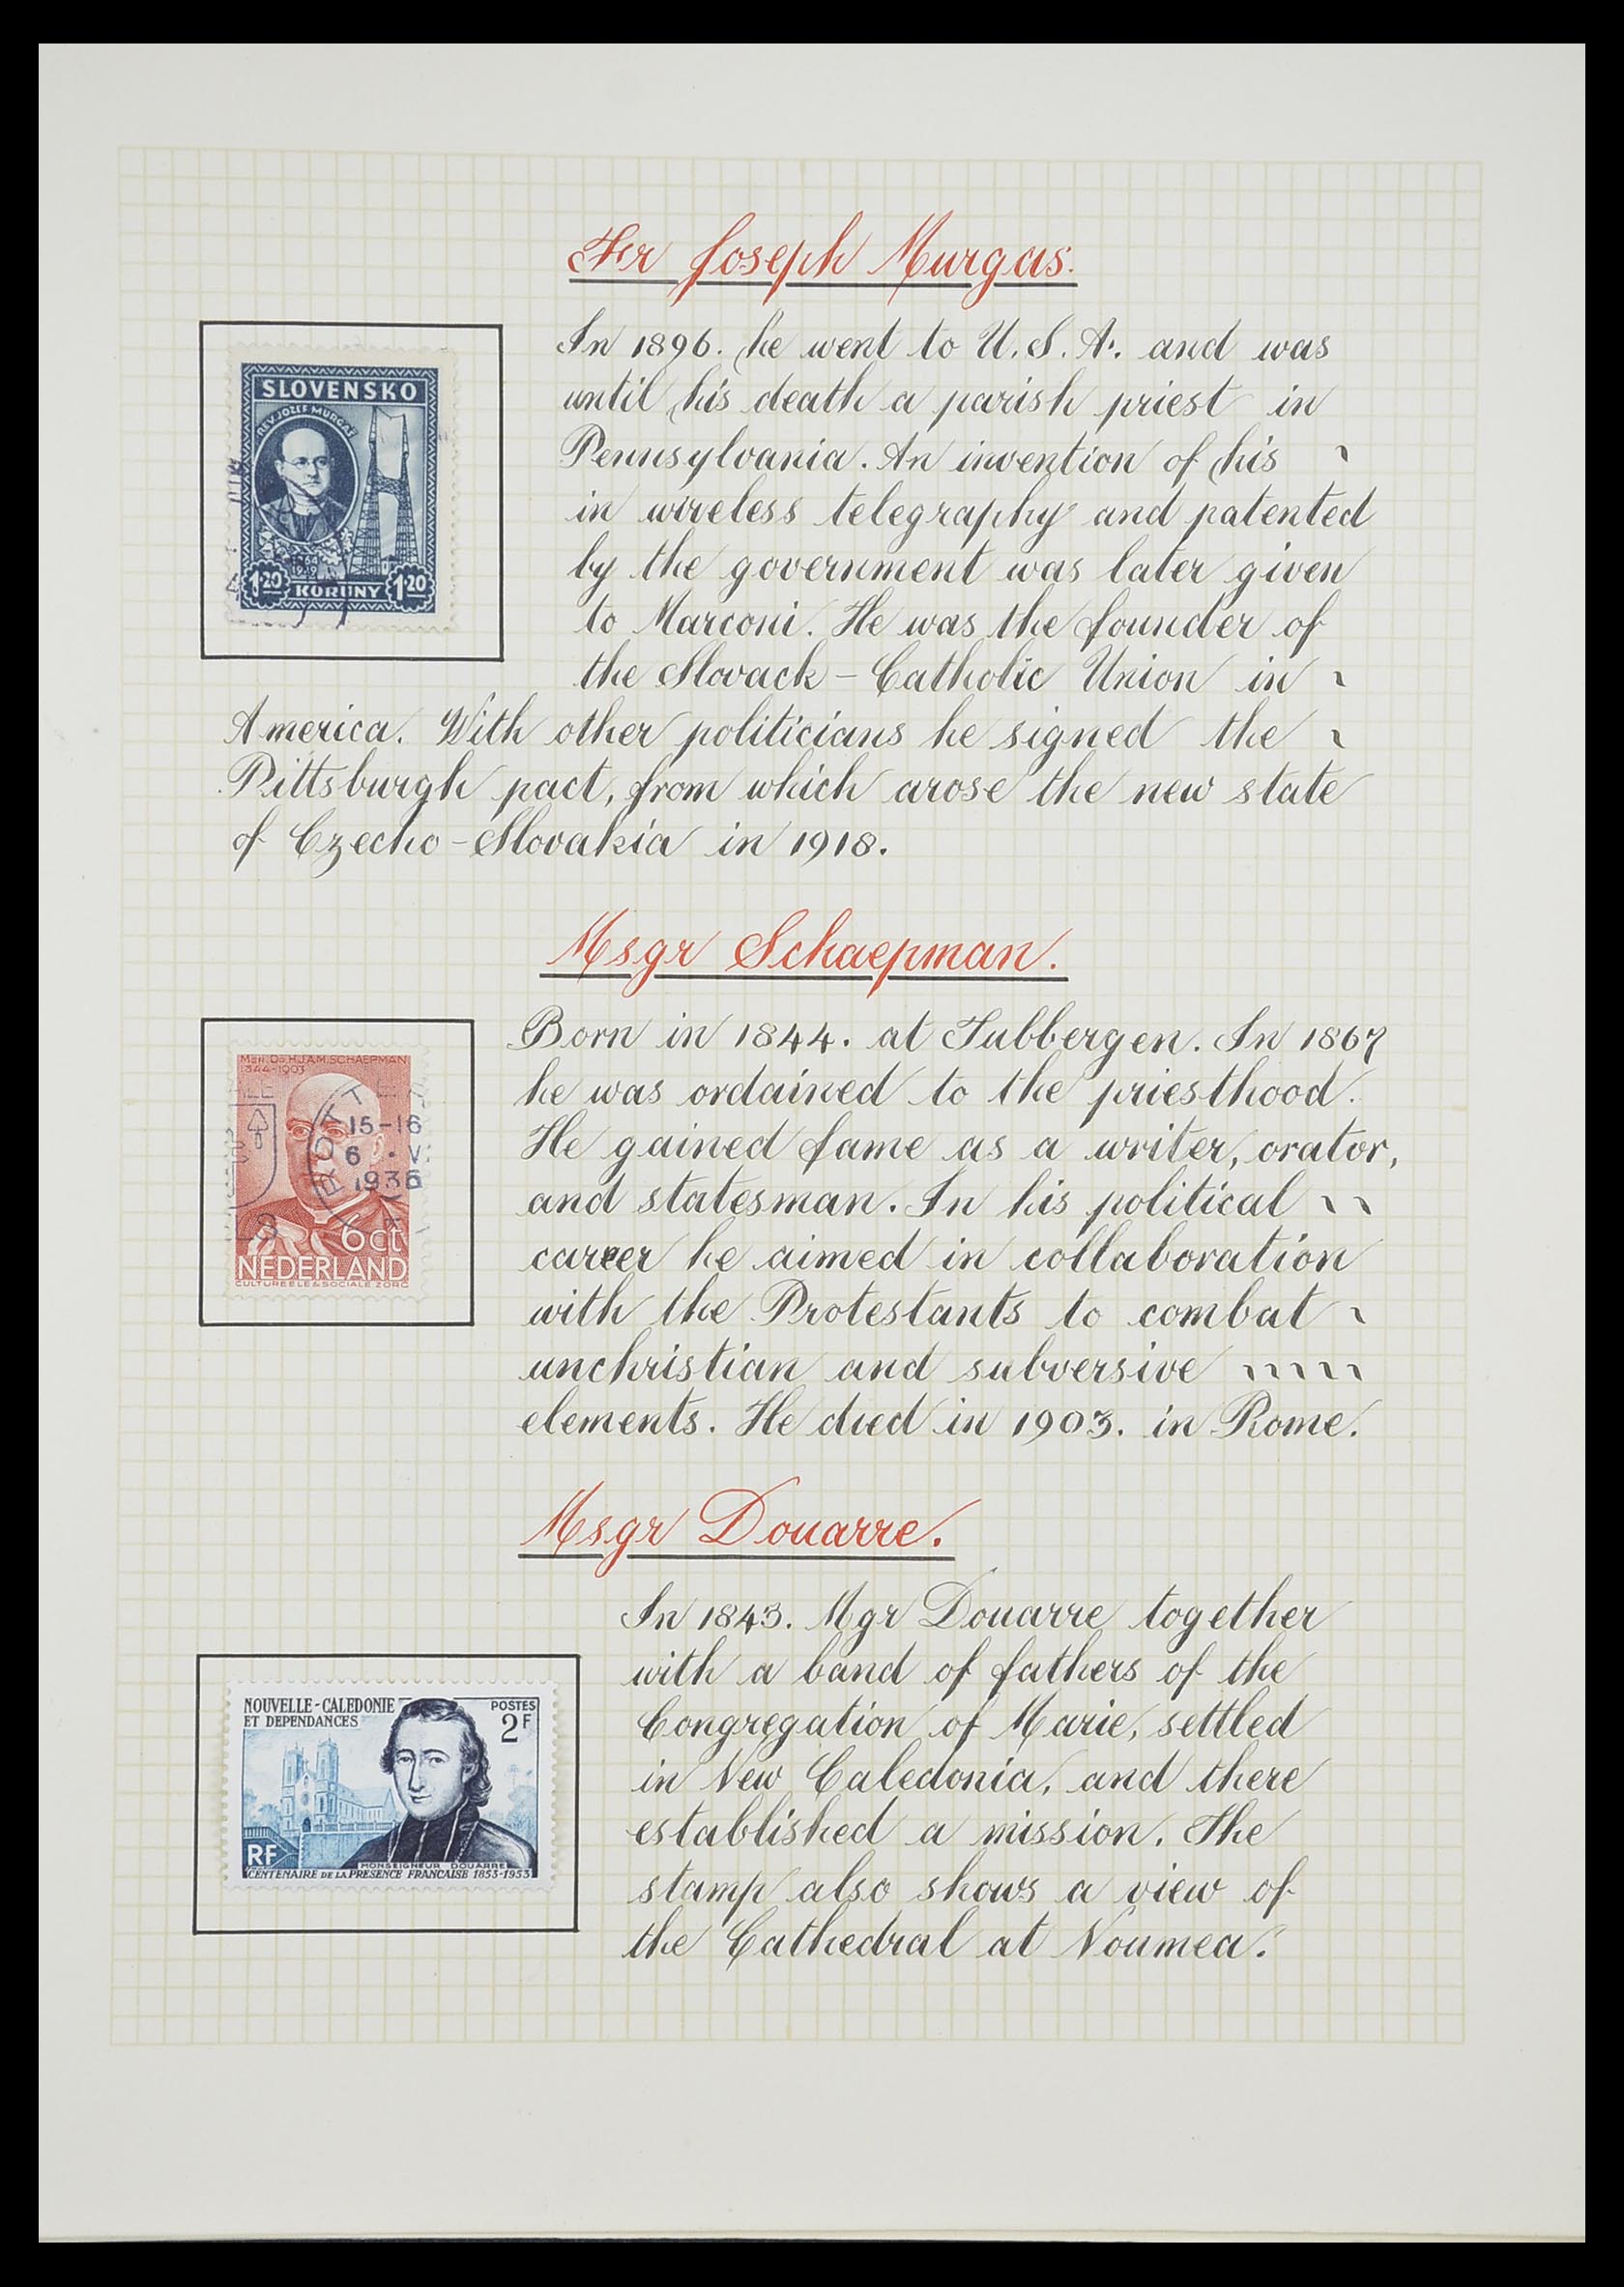 Fr Joseph Murgas.
SLOVENSKO
REV. JOZEF MURGAŠ
1·20 KORUNY 1·20
In 1896. he went to U.S.A. and was
until his death a parish priest in
Pennsylvania. An invention of his
in wireless telegraphy and patented
by the government was later given
to Marconi. He was the founder of
the Slovack - Catholic Union in
America. With other politicians he signed the
Pittsburgh pact, from which arose the new state
of Czecho-Slovakia in 1918.
Msgr Schaepman.
MGR. DR. H.J.A.M. SCHAEPMAN
1844-1903
15-16
6 · V
1936
6ct
NEDERLAND
CULTUREELE & SOCIALE ZORG
Born in 1844. at Tubbergen. In 1867
he was ordained to the priesthood.
He gained fame as a writer, orator,
and statesman. In his political
career he aimed in collaboration
with the Protestants to combat
unchristian and subversive
elements. He died in 1903. in Rome.
Msgr Douarre.
NOUVELLE-CALEDONIE
ET DEPENDANCES
POSTES
2F
RF
MONSEIGNEUR DOUARRE
CENTENAIRE DE LA PRESENCE FRANCAISE 1853-1953
In 1843. Mgr Douarre together
with a band of fathers of the
Congregation of Marie, settled
in New Caledonia, and there
established a mission. The
stamp also shows a view of
the Cathedral at Noumea.